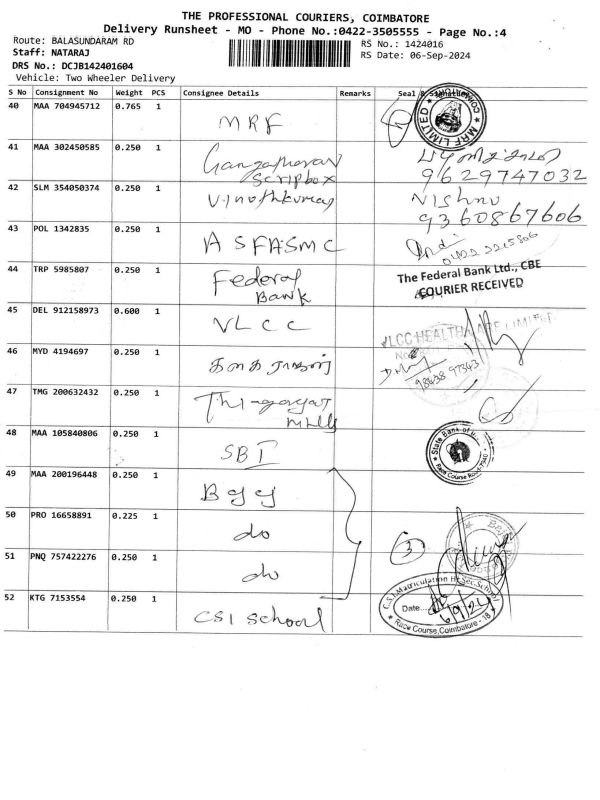 THE PROFESSIONAL COURIERS, COIMBATORE
Delivery Runsheet - MO - Phone No.:0422-3505555 - Page No.:4
Route: BALASUNDARAM RD
RS No.: 1424016
Staff: NATARAJ
RS Date: 06-Sep-2024
DRS No.: DCJB142401604
Vehicle: Two Wheeler Delivery
S No Consignment No Weight PCS Consignee Details Remarks Seal & Signature
40 MAA 704945712 0.765 1 MRF MRF LIMITED COIMBATORE
41 MAA 302450585 0.250 1 Scripbox 9629747032
42 SLM 354050374 0.250 1 Vinothkumar Vishnu 9360867606
43 POL 1342835 0.250 1 ASFASMC 0422 2215806
44 TRP 5985807 0.250 1 Federal Bank The Federal Bank Ltd., CBE COURIER RECEIVED
45 DEL 912158973 0.600 1 VLCC VLCC HEALTH CARE LIMITED
46 MYD 4194697 0.250 1 98438 97343
47 TMG 200632432 0.250 1 Thiagarajar Mills
48 MAA 105840806 0.250 1 SBI State Bank of Race Course Road
49 MAA 200196448 0.250 1
50 PRO 16658891 0.225 1 do
51 PNQ 757422276 0.250 1 do 3
52 KTG 7153554 0.250 1 CSI School C.S.I. Matriculation Hr. Sec. School Date... 6/9/24 Race Course, Coimbatore - 18